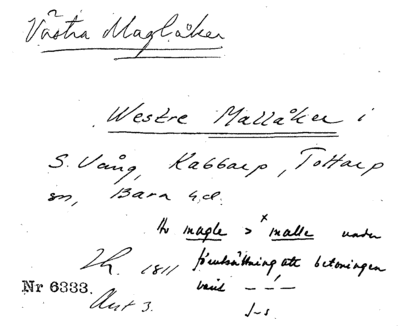 Västra Maglåker
Westre Mallåker i
S. Vång, Kabbarp, Tottarp
sn, Bara hd.
Av magle > *malle under
förutsättning att betoningen
Lh. 1811
varit – –́ –
Nr 6333.
Akt 3.
J-s